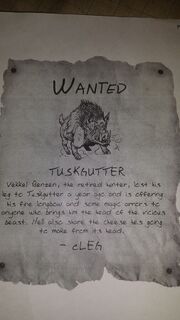 WANTED
TUSKGUTTER
Vekkel Benzen, the retired hunter, lost his
leg to Tuskgutter a year ago and is offering
his fine longbow and some magic arrows to
anyone who brings him the head of the vicious
beast. He'll also share the cheese he's going
to make from its head.
~ cLEG